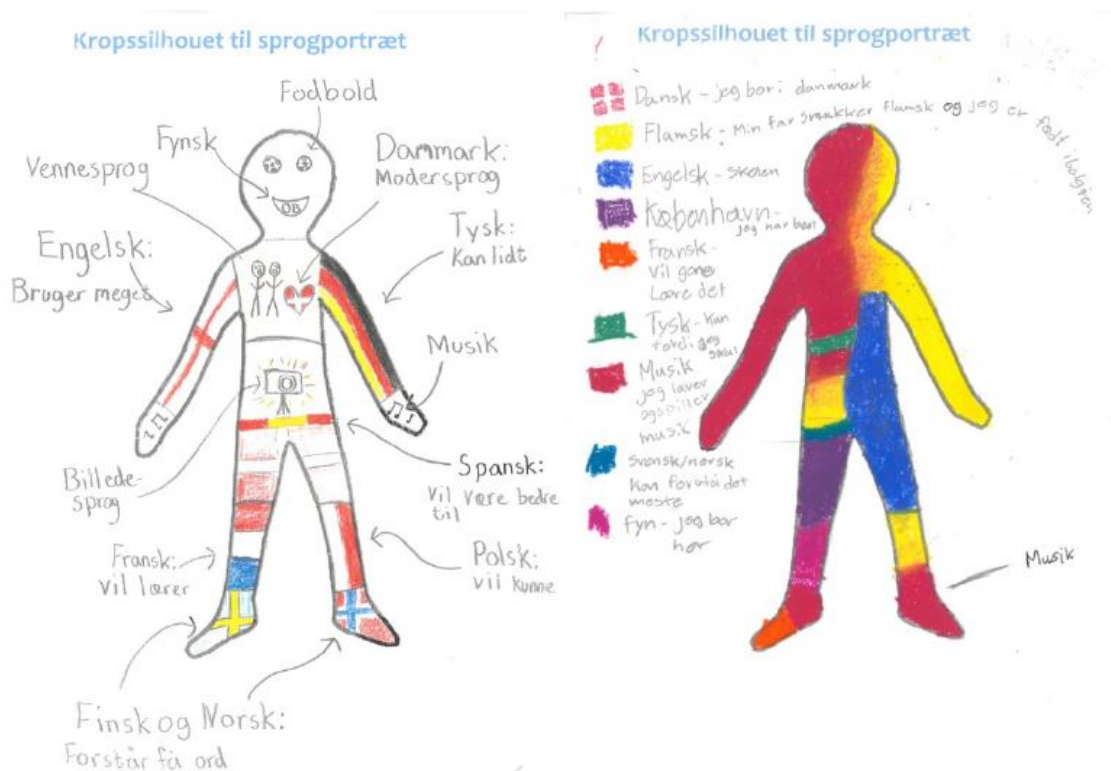 Kropssilhouet til sprogportræt
Fodbold
Fynsk
Vennesprog
Danmark:
Modersprog
ØB
Engelsk:
Bruger meget
Tysk:
Kan lidt
Musik
Billede-
sprog
Spansk:
Vil være bedre
til
Fransk:
Vil lærer
Polsk:
Vil kunne
Finsk og Norsk:
Forstår få ord
Kropssilhouet til sprogportræt
Dansk - jeg bor i danmark
Flamsk - Min far snakker flamsk og jeg er født i belgien
Engelsk - skolen
København -
jeg har boet
Fransk -
Vil gerne
Lære det
Tysk - Kun
fordi jeg skal
Musik
jeg laver
og spiller
musik
Svensk/norsk
Kan forstå det
meste
fyn - jeg bor
her
Musik